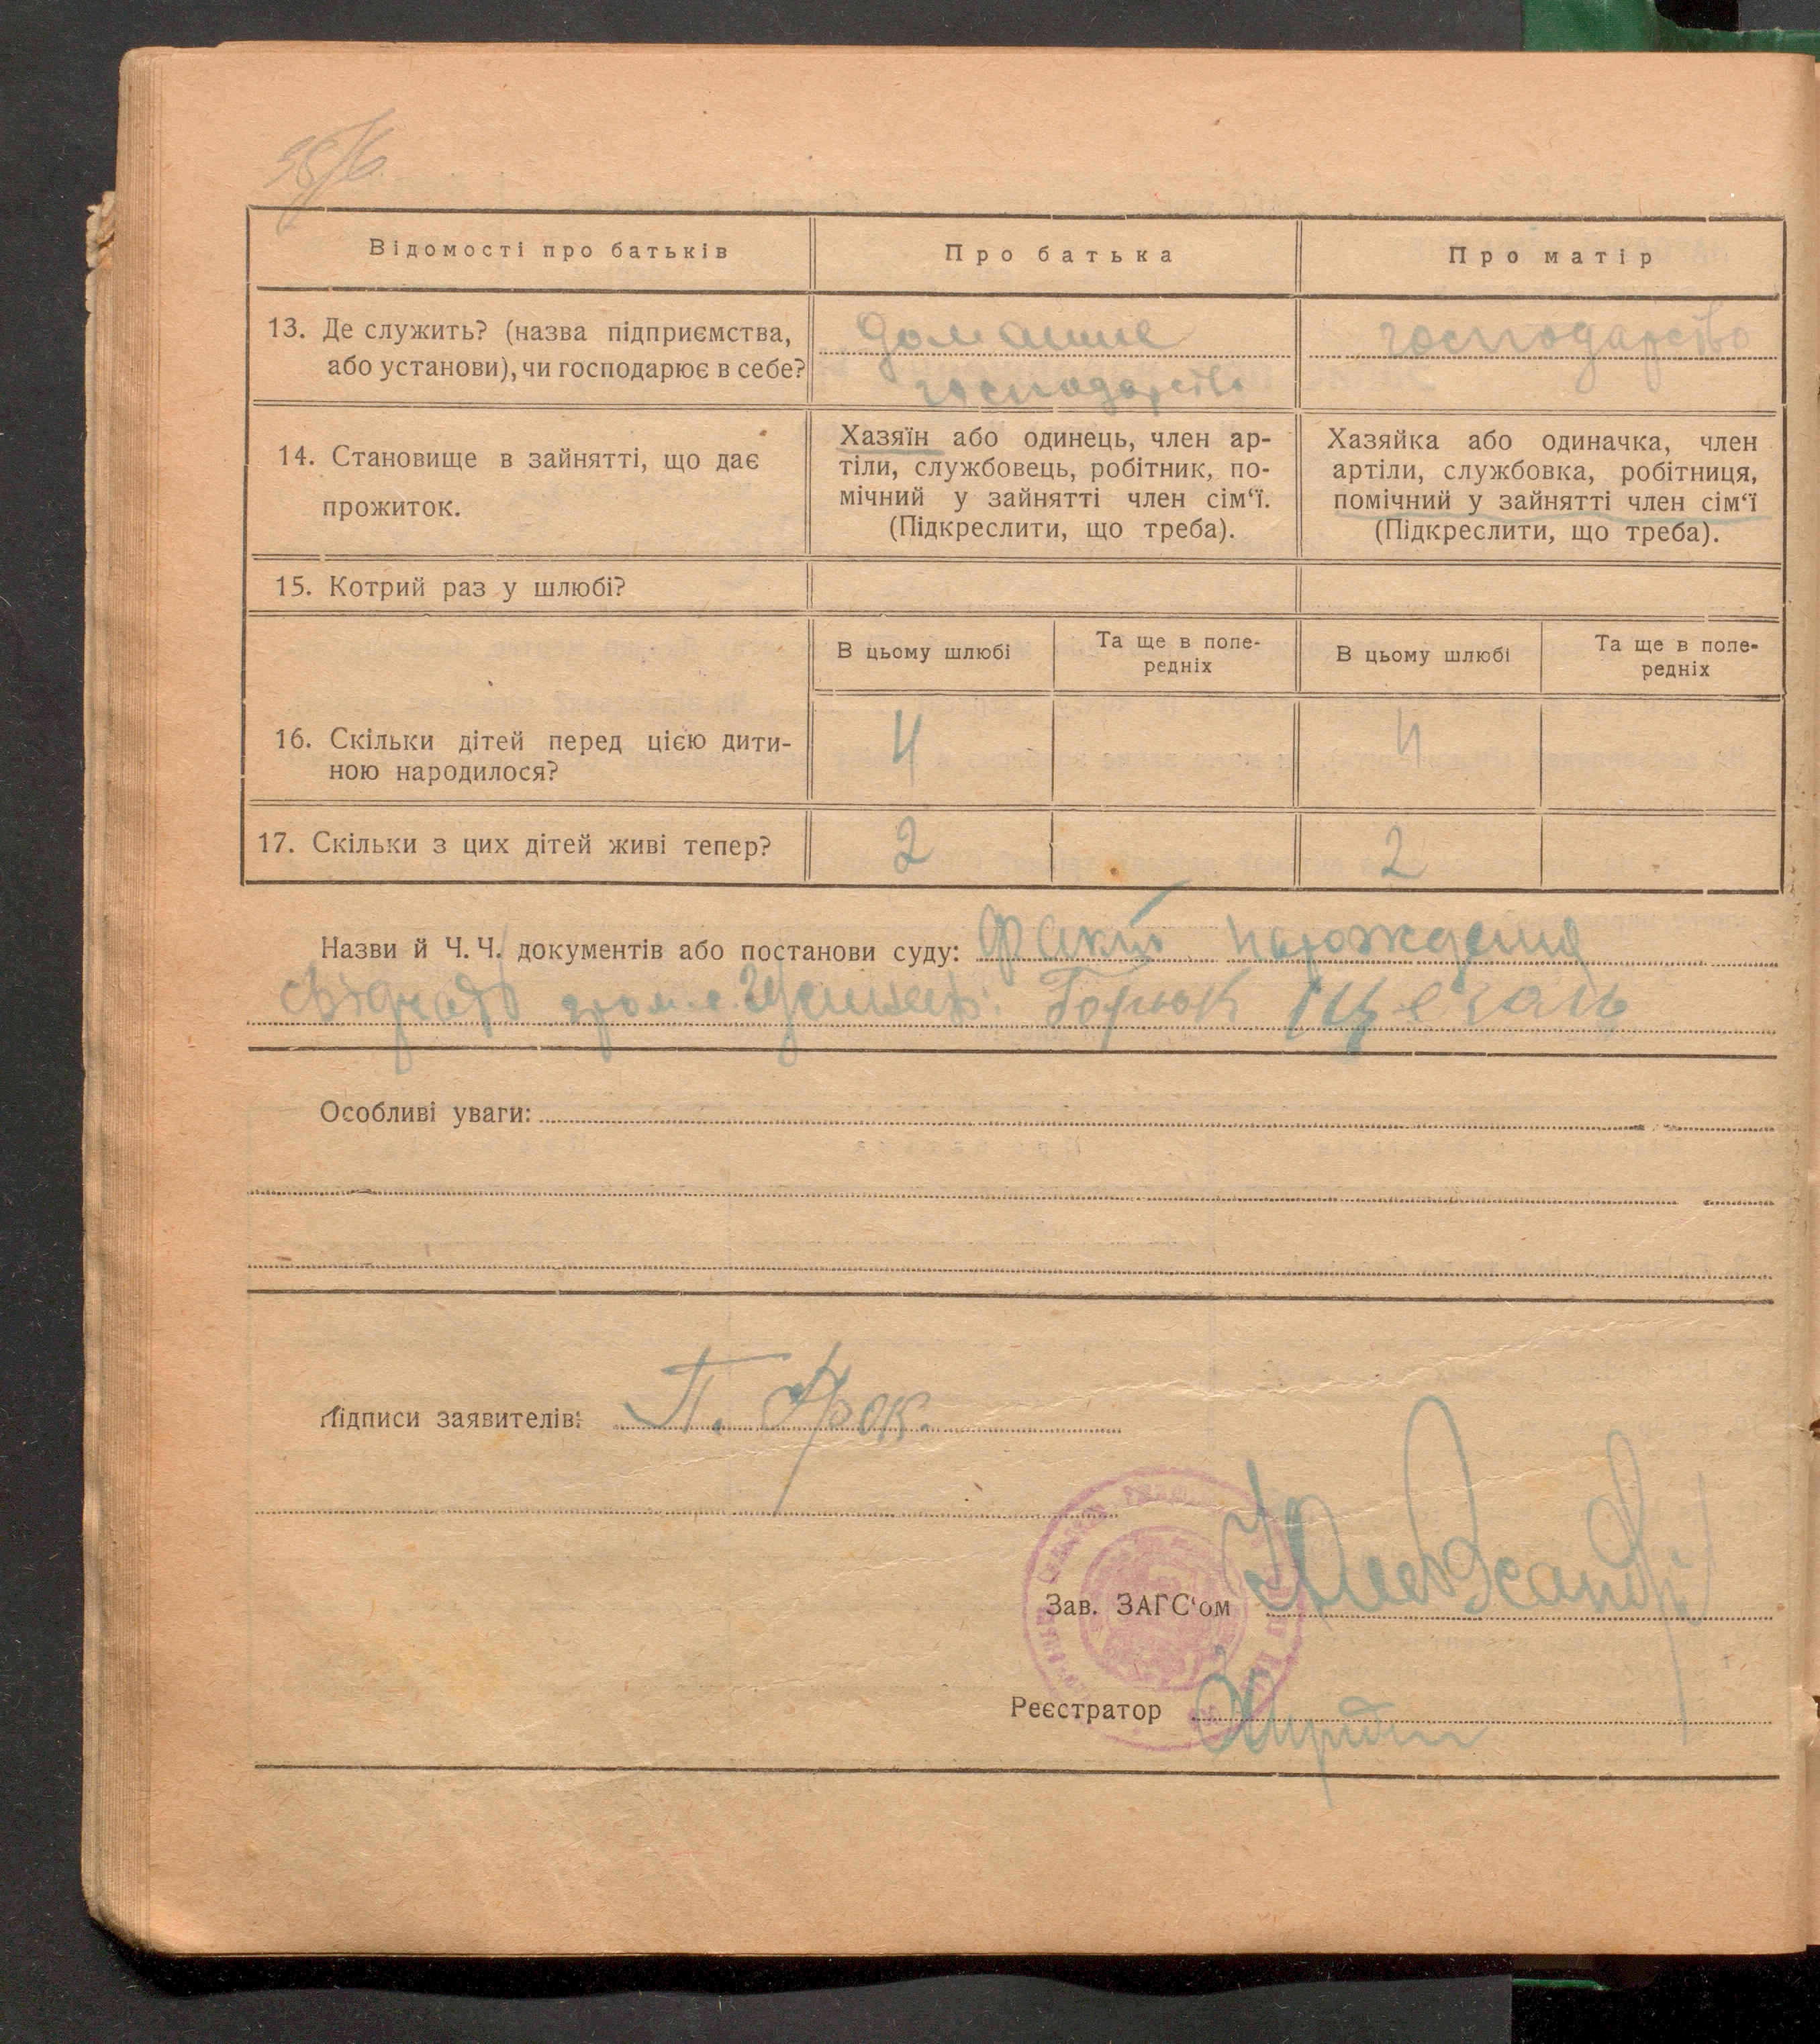 Відомості про батьків
Про батька
Про матір
13. Де служить? (назва підприємства,
або установи), чи господарює в себе?
домашнє
господарство
господарство
14. Становище в зайнятті, що дає
прожиток.
Хазяїн або одинець, член ар-
тіли, службовець, робітник, по-
мічний у зайнятті член сім‘ї.
(Підкреслити, що треба).
Хазяйка або одиначка, член
артіли, службовка, робітниця,
помічний у зайнятті член сім‘ї
(Підкреслити, що треба).
15. Котрий раз у шлюбі?
В цьому шлюбі
Та ще в попе-
редніх
В цьому шлюбі
Та ще в попе-
редніх
16. Скільки дітей перед цією дити-
ною народилося?
4
4
17. Скільки з цих дітей живі тепер?
2
2
Назви й Ч. Ч. документів або постанови суду: факт народження
Особливі уваги:
Підписи заявителів: П.
Зав. ЗАГС‘ом
Реєстратор